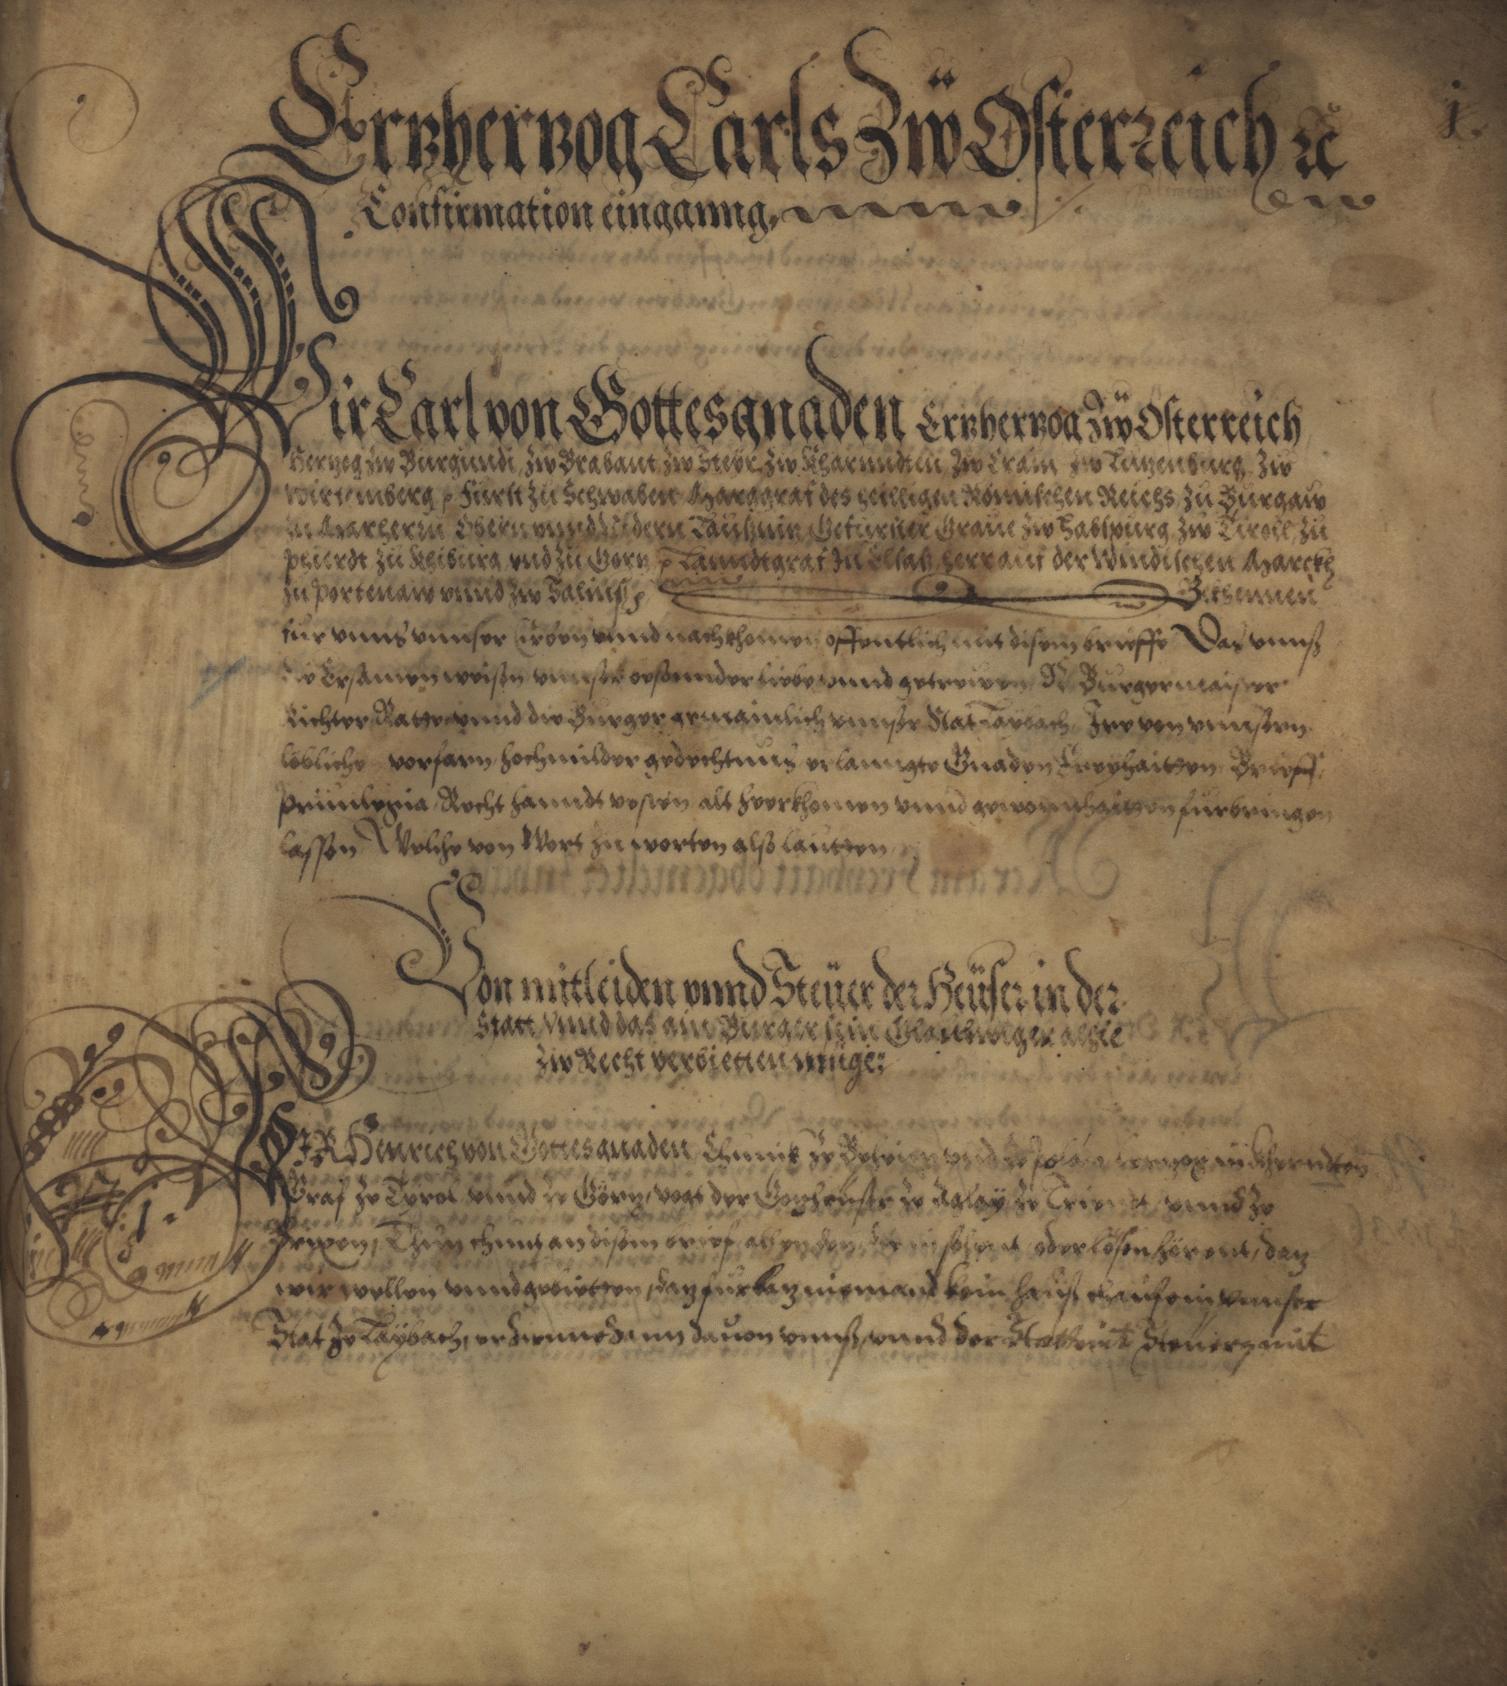 1.
Ertzhertzog Carls Zw Österreich ꝛc
Confirmation einganng,
Wir Carl von Gottes gnaden Ertzhertzog Zw Osterreich
Hertzog zw Burgundi, zw Brabant zw Steyr, zw Kharnndten, zw Crain, zw Lutzenburg, zw
Wirtemberg, Fürst zu Schwaben Marggraf des heilligen Römischen Reichs, zu Burgaw
zu Marhern, Obern vnnd Nidern Laußnitz, Gefürster Graue zw Habspurg, zw Tiroll, zu
Phierdt zu Khiburg, vnd zu Görtz Lanndtgraf in Elsaß, Herr auf der Windischen Marckh
zu Portenaw vnnd zw Salins Bekhennen
für vnns vnnser Erben vnnd nachkhomen offentlich mit disem brieffe Das vnnß
die Ersamen weisen vnnser besonnder liebe vnnd getrewen N. Burgermaister
Richter Ratte vnnd die Burger gemainlich vnnser Stat Laybach, Ire von vnnsern
löbliche vorfarn hochmilder gedechtnuß erlanngte Gnaden Freyhaitten Brieff,
Priuilegia, Recht hanndtvesten alt herkhomen vnnd gewonnhaitten fürbringen
lassen Welche von Wort zu worten also lautten
Von mitleiden vnnd Steüer der Heüser in der
Statt, Vnnd das ain Burger sein
zw Recht verbietten müge:
.1.
WIR Heinrich von Gottes gnaden Chunik ze Beheim vnd ze Polan hertzog in Kherndten
Graf ze Tyrol vnnd ze Görtz, vogt der Gotzheuser ze Aglay ze Triendt, vnnd ze
Brixen, Thun chunt an disem brief allen den, die in sehent oder lesen hörent, daz
wir wellen vnnd gebietten, daz fürbaz niemant kein hauß chauf in vnnser
Stat ze Laybach, er diene dann dauon vnnß, vnnd der Stat mit Steuer mit